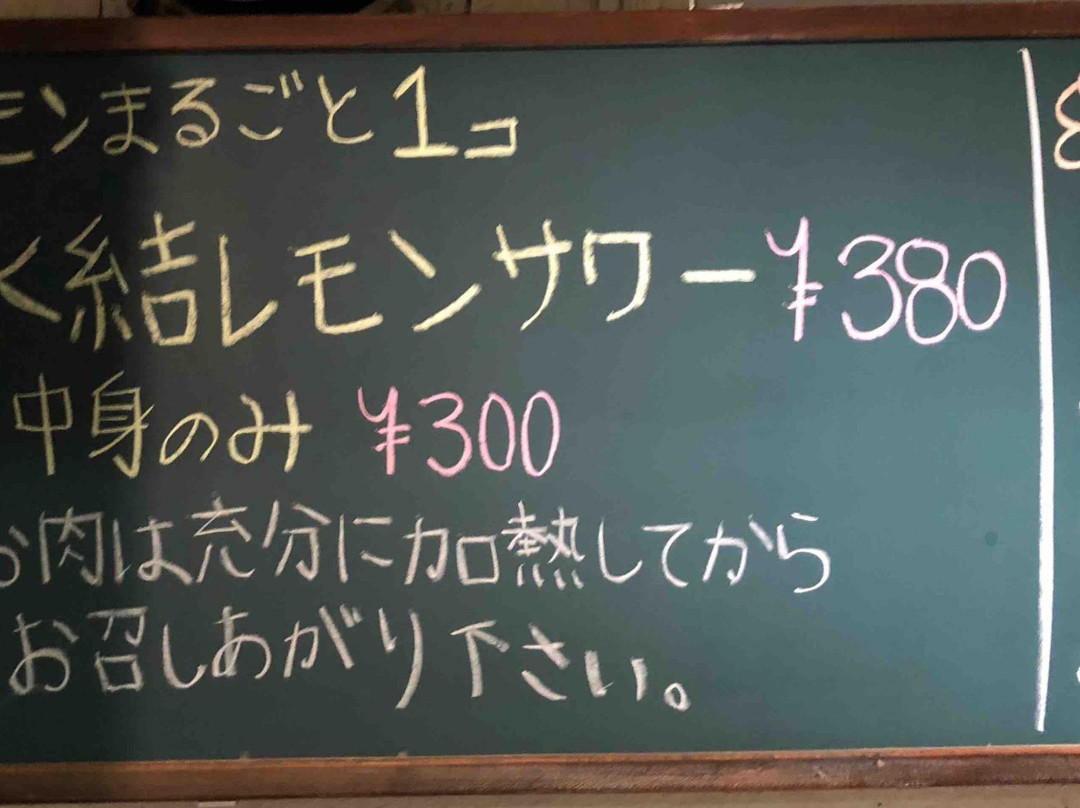 モンまるごと1コ
く結レモンサワー ¥380
中身のみ ¥300
お肉は充分に加熱してから
お召しあがり下さい。